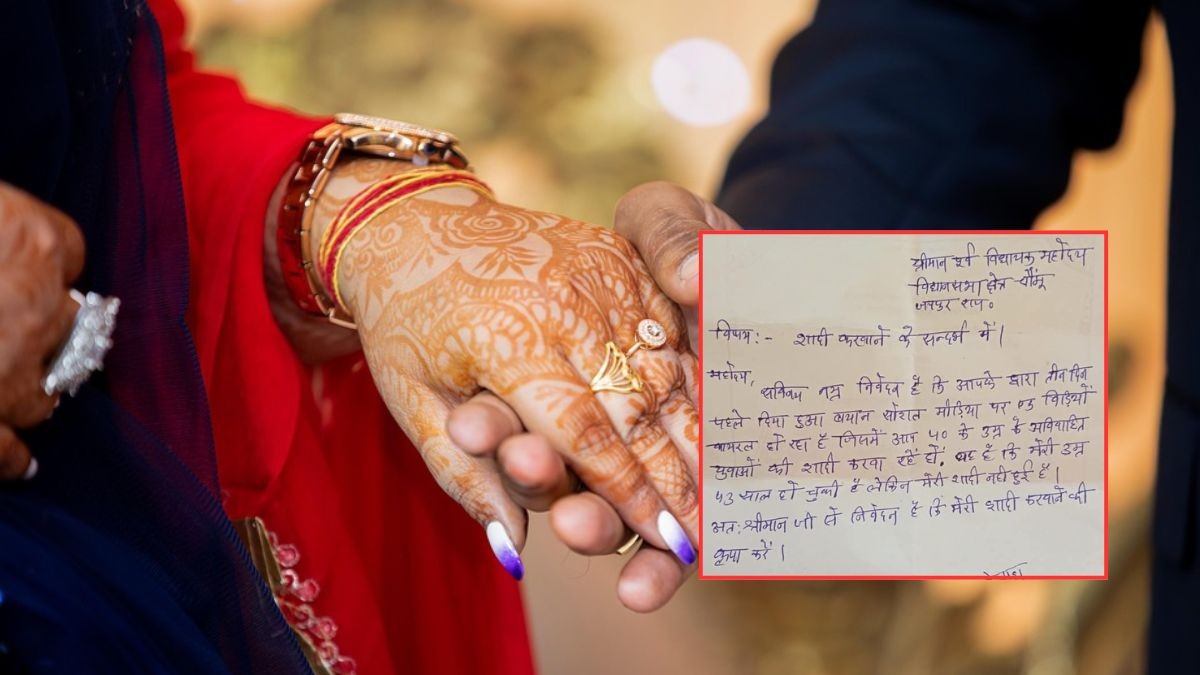 श्रीमान पूर्व विधायक महोदय
विधानसभा क्षेत्र चौमूं
जयपुर राज०
विषय :- शादी करवाने के सन्दर्भ में।
महोदय,
सविनय नम्र निवेदन है कि आपके द्वारा तीन दिन
पहले दिया हुआ बयान सोशल मीडिया पर विडियों
वायरल हो रहा है जिसमें आप 40 के उम्र के अविवाहित
युवाओं की शादी करवा रहें हों. है कि मेरी उम्र
43 साल हो चुकी है लेकिन मेरी शादी नही हुई है।
अत: श्रीमान जी से निवेदन है कि मेरी शादी करवाने की
कृपा करें।